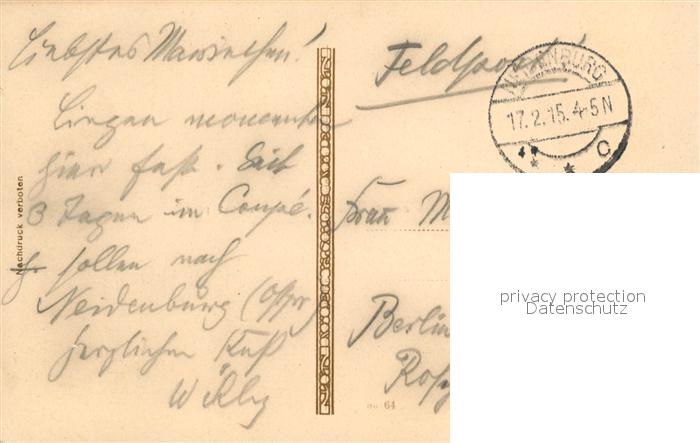 Liebstes Mariechen!
Liegen momentan
hier fest. Seit
3 Tagen im Coupé.
sollen nach
Neidenburg (Ostpr)
herzlichen Kuß
Willy
Nachdruck verboten
Feldpost!
17.2.15.4-5N
C
Frau M
Berlin
64
privacy protection
Datenschutz